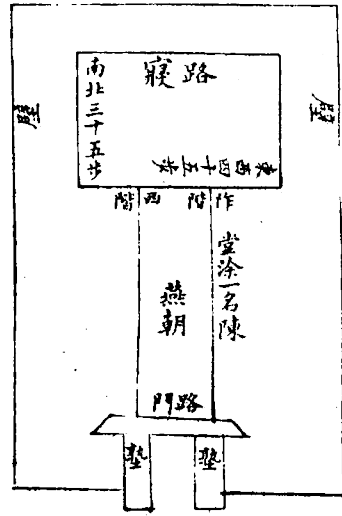 路寢
南北三十五步
東西四十五步
壁
阼階
西階
堂涂一名陳
燕朝
路門
塾
塾